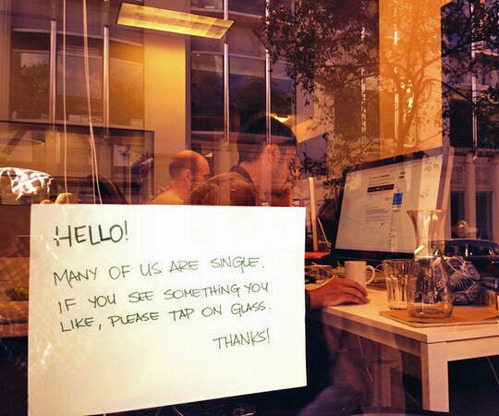 HELLO!
MANY OF US ARE SINGLE.
IF YOU SEE SOMETHING YOU
LIKE, PLEASE TAP ON GLASS.
THANKS!